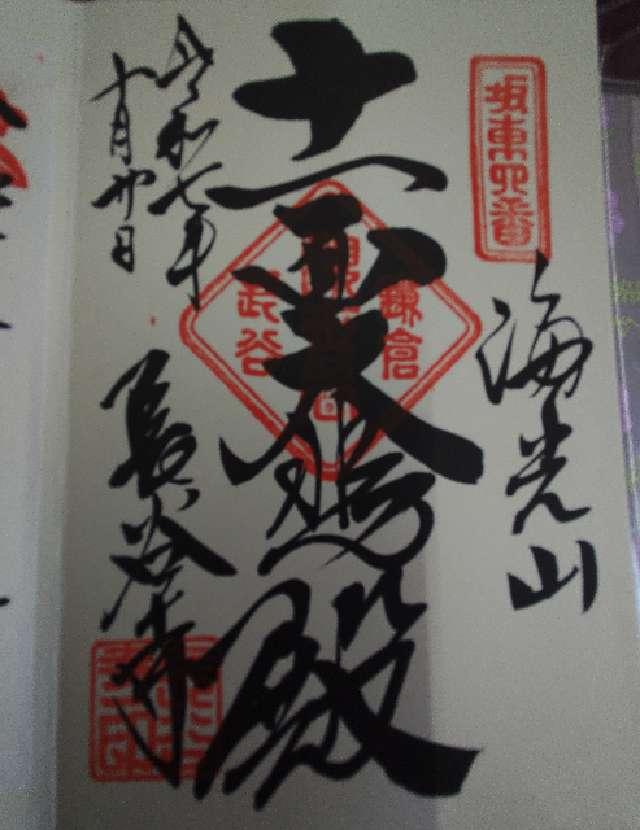 坂東四番
海光山
十一面大悲殿
鎌倉
長谷
長谷寺
令和七年
十月廿日